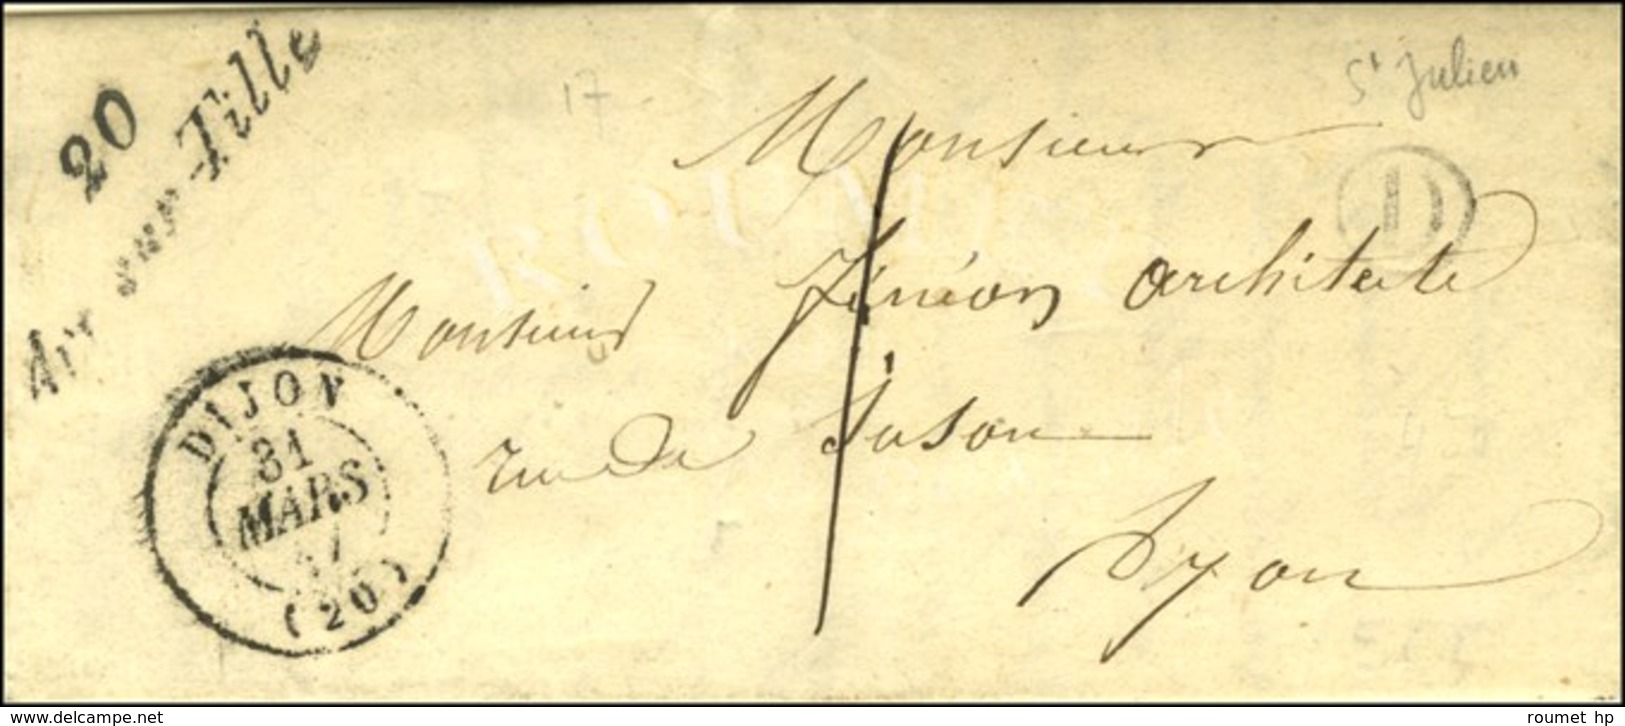 20
Arc sur-Tille
17
St Julien
Monsieur
D
ROUMET
Monsieur architecte
rue de Suson
DIJON
31
MARS
47
(20)
Dijon
www.delcampe.net
roumet hp